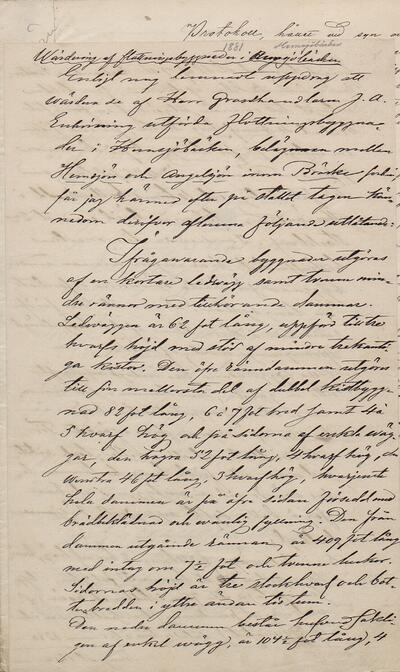 Protokoll, hållet vid syn o
1881 Hemsjöbäcken
Värdering af flottningsbyggnader i Hemsjöbäcken
Enligt mig lemnadt uppdrag att
värdera de af Herr Grosshandlaren J. A.
Enhörning utförda flottningsbyggna-
der i Hemsjöbäcken, belägna mellan
Hemsjön och Angelsjön inom Bräcke
får jag härmed efter på stället tagen kän-
nedom deröfver aflemna följande utlåtande:
Ifrågavarande byggnader utgöras
af en kortare ledvägg samt tvenne min-
dre rännor med tillhörande dammar.
Ledväggen är 62 fot lång, uppförd till tre
hvarfs höjd med stöd af mindre trekanti-
ga kistor. Den öfre ränndammen utgöres
till sin mellersta del af dubbel kistbygg-
nad 82 fot lång, 6 à 7 fot bred samt 4 à
5 hvarf hög och på sidorna af enkla väg-
gar, den högra 52 fot lång, 4 hvarf hög, den
venstra 46 fot lång, 3 hvarf hög, hvarjemte
hela dammen är på öfre sidan försedd med
brädbeklädnad och vanlig fyllning. Den från
dammen utgående rännan är 409 fot lång
med intag om 7½ fot och tvenne luckor.
Sidornas höjd är tre stockhvarf och bot-
tenbredden i yttre ändan tio tum.
Den nedre dammen består hufvudsakli-
gen af enkel vägg, är 104½ fot lång, 4